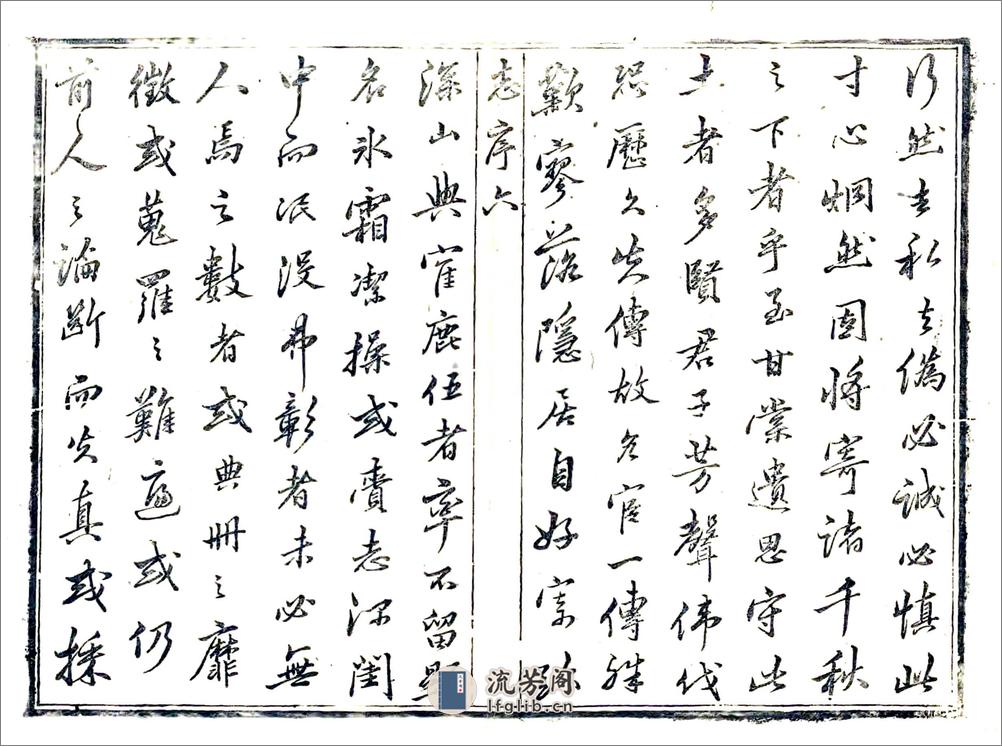 行然去私去偽必誠必慎此
寸心炯然固将寄諸千秋
之下者乎至甘棠遺思守此
土者多賢君子芳聲偉伐
恐歷久失傳故名宦一傳殊
歎寥落隱居自好寄
志序六
深山與麋鹿伍者率不留
名氷霜潔操或賫志深閨
中而泯没弗彰者未必無
人焉之數者或典冊之靡
徵或蒐羅之難遍或仍
前人之論斷而失真或採
流芳阁
lfglib.cn